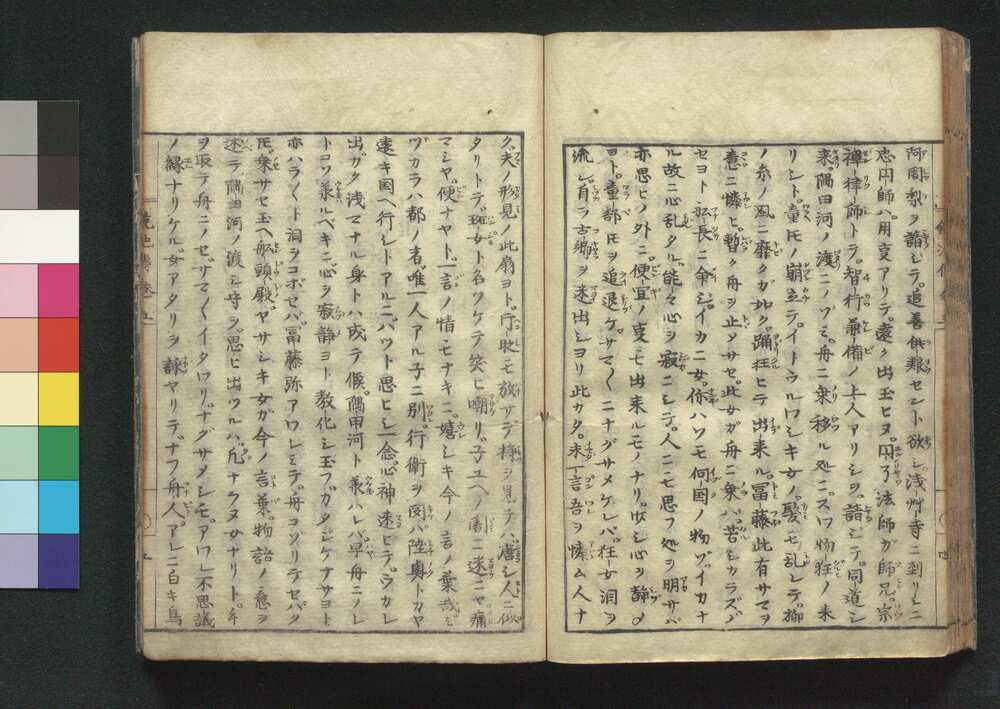 阿闍梨ヲ請シテ。追善供養セント欲シ浅艸寺ニ到リシニ
忠円師ハ。用支アリテ。遠ク出玉ヒヌ。円了法師ガ師兄。宗
禅律師トテ。智行兼備ノ上人アリシヲ。請シテ。同道シ
来。隅田河ノ渡ニノゾミ。舟ニ乗移ル処ニ。スワ物狂ノ来
リシト。童モノ崩立テ。イトウルワシキ女ノ。髪モ乱レテ。柳
ノ糸ノ風ニ靡クガ如ク。踊狂ヒテ出来ル。冨藤此有サマヲ
意ニ憐ヒ。暫ク舟ヲ止メサセ。此女ガ舟ニ乗ハ。苦シカラズ
セヨト舩長ニ命シ。イカニ女。你ハソモ何国ノ物ゾ。イカナ
ル故ニ心乱タル。能々心ヲ寂ニシテ。人ニモ思フ処ヲ明サバ
亦思ヒノ外ニ。便宜ノ支モ出来ルモノナリ。少シ心ヲ静
ヨト。童部モヲ追退ケ。サマ〱ニナグサメケレバ。狂女泪ヲ
流シ。自ラ古郷ヲ迷出シヨリ此カタ。未一言吾ヲ憐ム人ナ
ク。夫ノ形見ノ此扇ヨト。片時モ放サデ持ヲ見テハ。唐シ人ニ似
タリトテ。班女ト名ツケテ笑ヒ嘲リ。子ユヘノ闇ニ迷ニヤ。痛
マシヤ。便ナヤト一言ノ情モナキニ。嬉シキ今ノ言ノ葉哉。ミ
ヅカラハ都ノ者。唯一人アル子ニ別。行衛ヲ問バ陸奥トカヤ
遠キ国ヘ行シトアルニ。ハツト思ヒシ一念心神迷ヒテ。ウカレ
出ガタ浅マナル身トハ成テ候。隅田河ト美ハレ。早舟ニノレ
トコソ美ルベキニ。心ヲ寂静ヨト教化シ玉フ。カタジケナサヨト
亦ハラ〱ト泪ヲコボセバ。冨藤弥アワレミテ。舟コソリテセバク
モ。乗サセ玉ヘ舩頭殿。ヤサシキ女ガ今ノ言葉。物語ノ意ヲ
述テ。隅田河ノ渡シ守ヲ思ヒ出ツルハ。凡ナラヌ女ナリト。手
ヲ取テ舟ニノセ。サマ〱イタワリ。ナグサメシモ。アワレ不思議
ノ縁ナリケル。女アタリヲ詠ヤリテ。ナフ舟人。アレニ白キ鳥